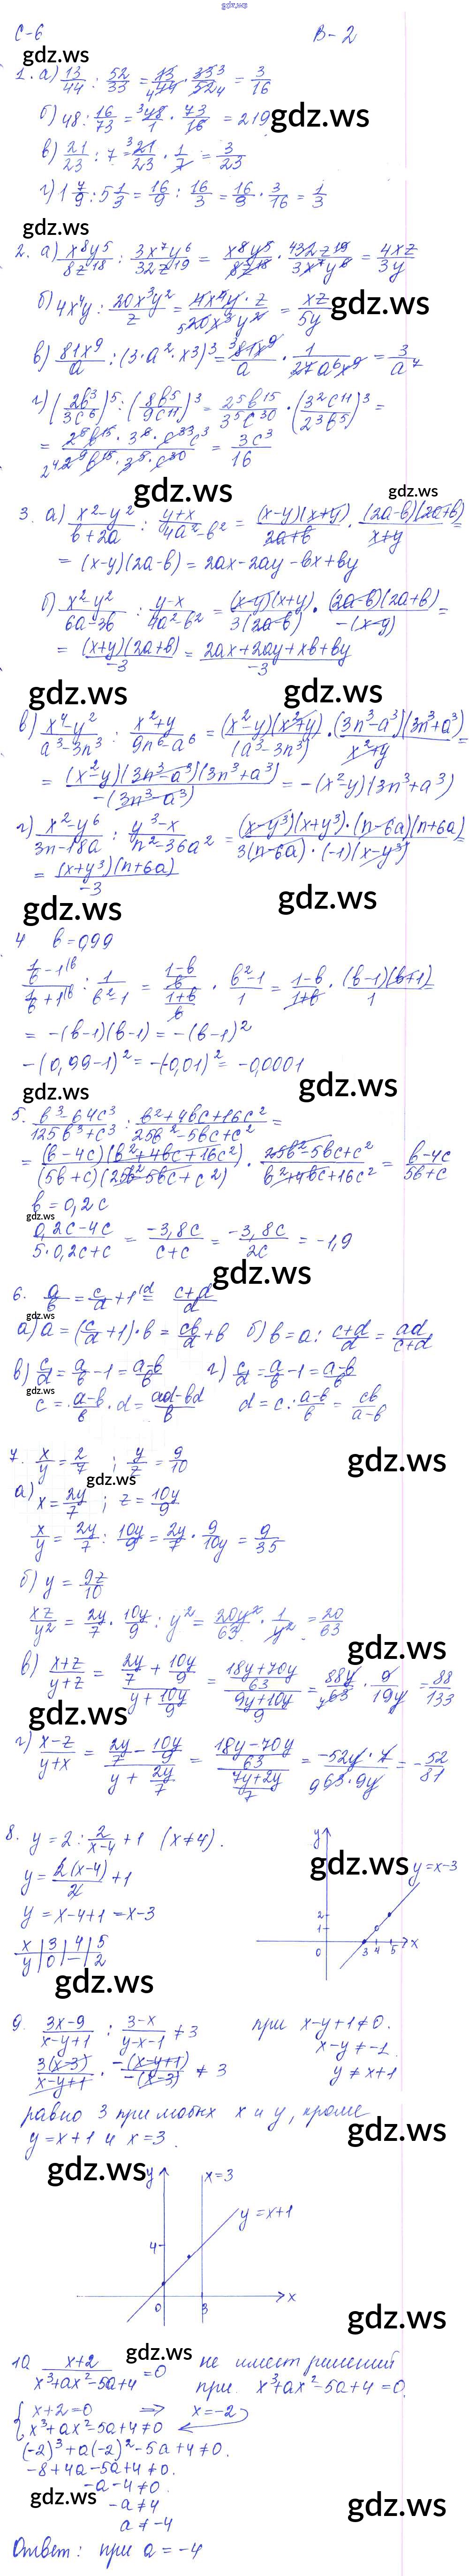 gdz.ws
С-6 В-2
gdz.ws
1. а) 13/44 : 52/33 = 13/44 · 33/52 = 3/16
б) 48 : 16/73 = 48/1 · 73/16 = 219
gdz.ws
в) 21/23 : 7 = 21/23 · 1/7 = 3/23
г) 1 7/9 : 5 1/3 = 16/9 : 16/3 = 16/9 · 3/16 = 1/3
gdz.ws
2. а) x⁸y⁵/8z¹⁸ : 3x⁷y⁶/32z¹⁹ = x⁸y⁵/8z¹⁸ · 32z¹⁹/3x⁷y⁶ = 4xz/3y
б) 4x⁴y : 20x³y²/z = 4x⁴y · z/20x³y² = xz/5y
gdz.ws
в) 81x⁹/a : (3·a²·x3)³ = 81x⁹/a · 1/27a⁶x⁹ = 3/a⁷
г) (2b³/3c⁶)⁵ : (8b⁵/9c¹¹)³ = 2⁵b¹⁵/3⁵c³⁰ · (3²c¹¹/2³b⁵)³ =
= 2⁵b¹⁵·3⁶·c³³c³/2⁴2⁹b¹⁵·3⁵·c³⁰ = 3c³/16
gdz.ws
gdz.ws
3. а) x²-y²/b+2a : y+x/4a²-b² = (x-y)(x+y)/2a+b · (2a-b)(2a+b)/x+y =
= (x-y)(2a-b) = 2ax-2ay-bx+by
б) x²-y²/6a-3b : y-x/4a²-b² = (x-y)(x+y)/3(2a-b) · (2a-b)(2a+b)/-(x-y) =
= (x+y)(2a+b)/-3 = 2ax+2ay+xb+by/-3
gdz.ws
gdz.ws
в) x⁴-y²/a³-3n³ : x²+y/9n⁶-a⁶ = (x²-y)(x²+y)/(a³-3n³) · (3n³-a³)(3n³+a³)/x²+y =
= (x²-y)(3n³-a³)(3n³+a³)/-(3n³-a³) = -(x²-y)(3n³+a³)
г) x²-y⁶/3n-18a : y³-x/n²-36a² = (x-y³)(x+y³)·(n-6a)(n+6a)/3(n-6a)·(-1)(x-y³) =
= (x+y³)(n+6a)/-3
gdz.ws
gdz.ws
4 b=0,99
1/b-1/1/b+1 : 1/b²-1 = 1-b/b/1+b/b · b²-1/1 = 1-b/1+b · (b-1)(b+1)/1 =
= -(b-1)(b-1) = -(b-1)²
-(0,99-1)² = -(-0,01)² = -0,0001
gdz.ws
gdz.ws
5. b³-64c³/125b³+c³ : b²+4bc+16c²/25b²-5bc+c² =
= (b-4c)(b²+4bc+16c²)/(5b+c)(25b²-5bc+c²) · 25b²-5bc+c²/b²+4bc+16c² = b-4c/5b+c
b=0,2c
gdz.ws
0,2c-4c/5·0,2c+c = -3,8c/c+c = -3,8c/2c = -1,9
gdz.ws
6. a/b = c/d + 1 = c+d/d
gdz.ws
а) a = (c/d+1)·b = cb/d + b б) b = a : c+d/d = ad/c+d
в) c/d = a/b - 1 = a-b/b г) c/d = a/b - 1 = a-b/b
gdz.ws
c = a-b/b · d = ad-bd/b d = c : a-b/b = cb/a-b
gdz.ws
7. x/y = 2/7 ; y/z = 9/10
gdz.ws
а) x = 2y/7 ; z = 10y/9
x/y = 2y/7 : 10y/9 = 2y/7 · 9/10y = 9/35
б) y = 9z/10
xz/y² = 2y/7 · 10y/9 : y² = 20y²/63 · 1/y² = 20/63
gdz.ws
в) x+z/y+z = 2y/7+10y/9/y+10y/9 = 18y+70y/63/9y+10y/9 = 88y/63 · 9/19y = 88/133
gdz.ws
г) x-z/y+x = 2y/7-10y/9/y+2y/7 = 18y-70y/63/7y+2y/7 = -52y·7/63·9y = -52/81
8. y = 2 : 2/x-4 + 1 (x≠4).
y = 2(x-4)/2 + 1
gdz.ws
y=x-3
y = x-4+1 = x-3
x 3 4 5
y 0 — 2
y 2 1 0 3 4 5 x
gdz.ws
9. 3x-9/x-y+1 : 3-x/y-x-1 ≠ 3 при x-y+1≠0.
x-y≠-1.
3(x-3)/x-y+1 · -(x-y+1)/-(x-3) ≠ 3 y≠x+1
равно 3 при любых x и y, кроме
y=x+1 и x=3.
gdz.ws
gdz.ws
y x=3
y=x+1
4
0 3 x
gdz.ws
10 x+2/x³+ax²-5a+4 = 0 не имеет решений
gdz.ws
при x³+ax²-5a+4=0.
{ x+2=0 ⇒ x=-2
x³+ax²-5a+4≠0
(-2)³+a(-2)²-5a+4≠0.
-8+4a-5a+4≠0.
-a-4≠0.
gdz.ws
-a≠4
gdz.ws
a≠-4
Ответ: при a=-4